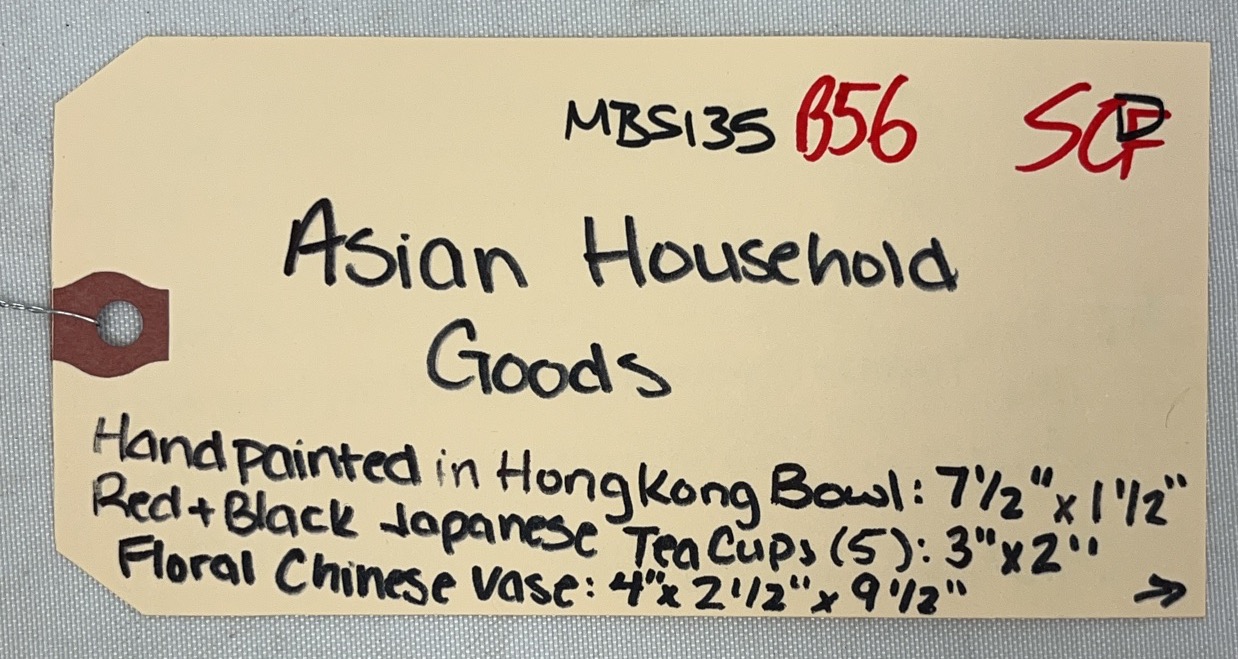 MBS135 B56
Asian Household
Goods
Handpainted in Hong Kong Bowl: 7 1/2" x 1 1/2"
Red + Black Japanese Tea Cups (5): 3" x 2"
Floral Chinese Vase: 4" x 2 1/2" x 9 1/2" →